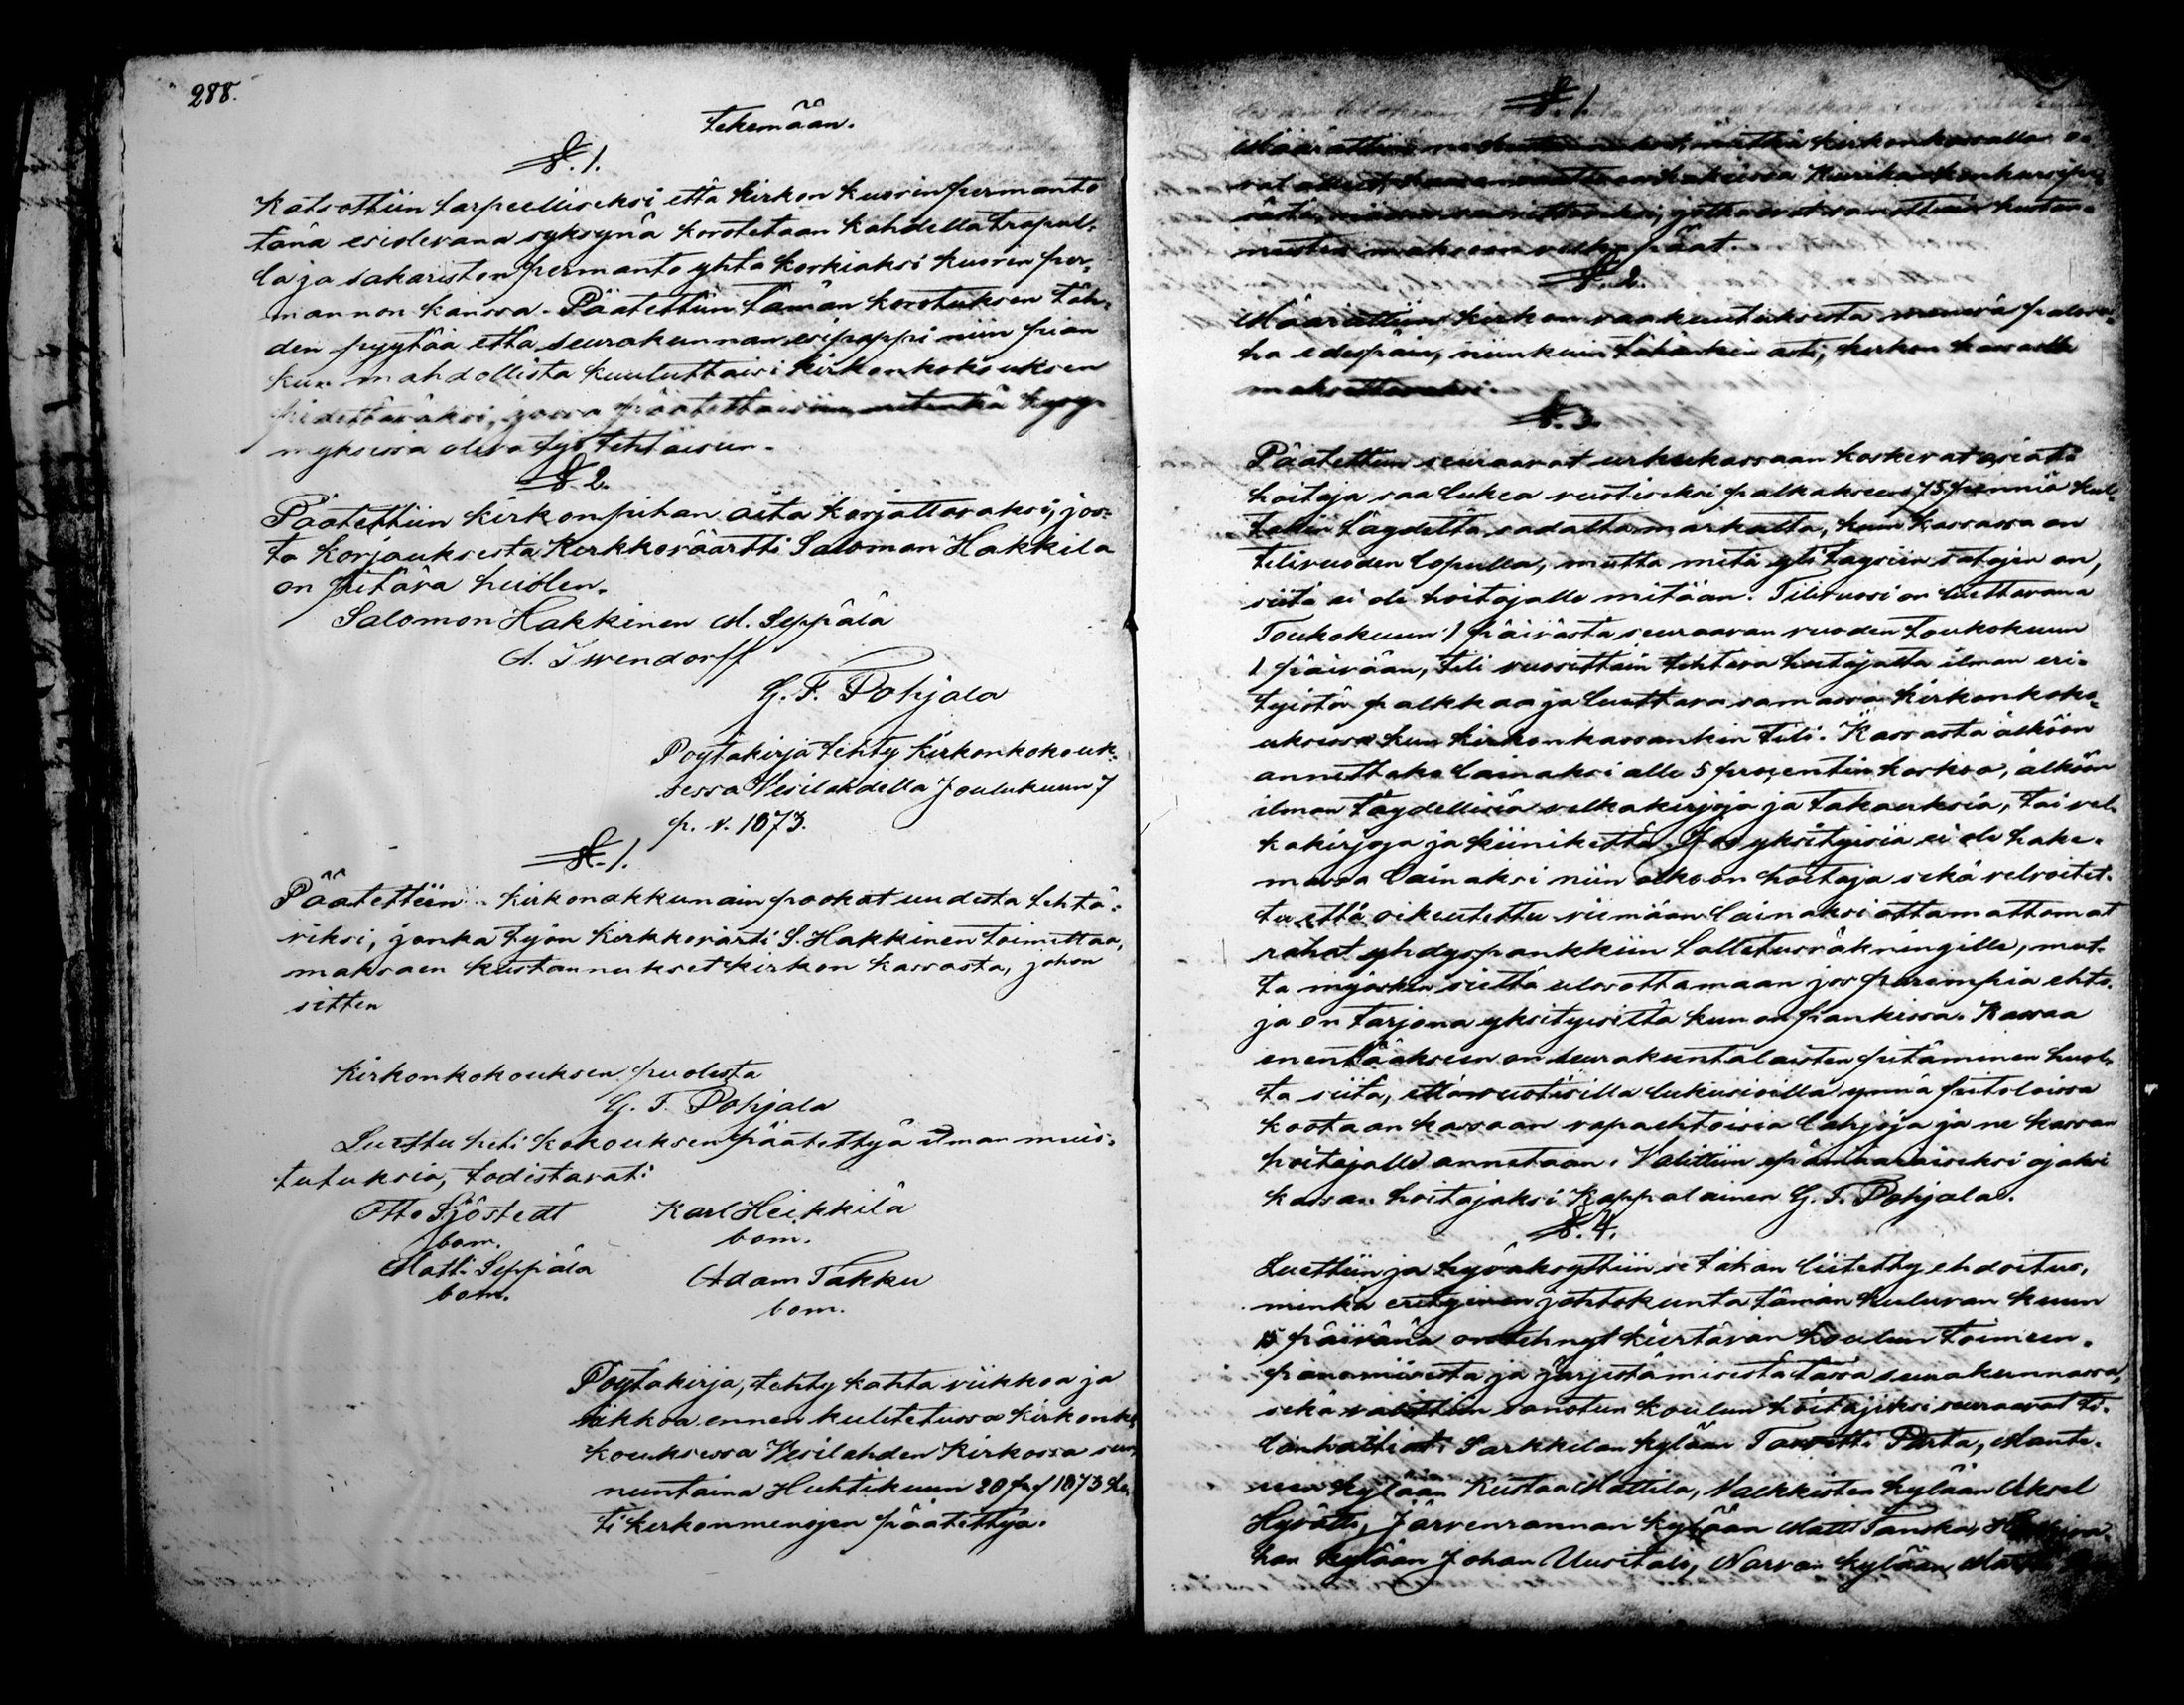 288.
tekemään.
§. 1.
Katsottiin tarpeelliseksi että Kirkon kuorin permanto
tänä esiolevana syksynä korotetaan kahdella trapul-
la ja sakariston permanto yhtä korkiaksi kuoren per-
mannon kanssa. Päätettiin tämän korotuksen täh-
den pyytää että seurakunnan esipappi niin pian
kun mahdollista kuuluttaisi kirkonkokouksen
pidettäväksi, jossa päätettäisiin, mitenkä kysy-
myksessä oleva työ tehtäisiin.
§ 2.
Päätettiin kirkonpihan aita korjattavaksi, jos-
ta korjauksesta Kirkkoväärtti Salomon Hakkila
on pitävä huolen.
Salomon Hakkinen M. Seppälä
A. Iwendorff
G. F. Pohjala
Pöytäkirja tehty Kirkonkokouk-
sessa Vesilahdella Joulukuun 7
p. v. 1873.
§. 1.
Päätettiin kirkonakkunain pookat uudesta tehtä-
viksi, jonka työn Kirkkovärti S. Hakkinen toimittaa,
maksaen kustannukset kirkon kassasta, johon
sitten
Kirkonkokouksen puolesta
G. F. Pohjala
Luettu heti kokouksen päätettyä ilman muis-
tutuksia, todistavat:
Otto Sjöstedt Karl Heikkilä
bom. bom.
Matti Seppälä Adam Takku
bom. bom.
Pöytäkirja, tehty kahta viikkoa ja
viikkoa ennen kulutetussa kirkonko-
kouksessa Vesilahden Kirkossa sun-
nuntaina Huhtikuun 20 p. 1873 he-
ti kirkonmenojen päätettyä.
§. 1.
Määrättiin kirkonkassalla o-
vat
nuksia maksaan
§. 2.
Määrättiin kirkon vaakuutuksesta menevä palora-
ha edespäin, niinkuin tähänkin asti, kirkon kassalla
maksettavaksi.
§. 3.
Päätettiin seuraavat urkukassaan koskevat asiat:
hoitaja saa lukea vuotiseksi palkakseen 75 penniä kul-
takin täydeltä sadalta markalta, kuin kassassa on
tilivuoden lopulla, mutta mitä yli täysiin satojen on,
siitä ei ole hoitajalle mitään. Tilivuosi on luettavana
Toukokuun 1 päivästä seuraavan vuoden toukokuun
1 päivään, tili vuosittain tehtävä hoitajalta ilman eri-
tyistä palkkaa ja luettava samassa kirkonkoko-
uksessa kun kirkonkassankin tili. Kassasta älköön
annettako lainaksi alle 5 prosentin korkoa, älköön
ilman täydellisiä velkakirjoja ja takauksia, tai vel-
kakirjoja ja kiinikettä. Jos yksityisiä ei ole hake-
massa lainaksi niin olkoon hoitaja sekä velvoitet-
tu että oikeutettu viemään lainaksi ottamattomat
rahat yhdyspankkiin talletusräkningille, mut-
ta myösken sieltä ulosottamaan jos parempia ehto-
ja on tarjona yksityisiltä kun on pankissa. Kassaa
enentääkseen on seurakuntalaisten pitäminen huol-
ta siitä, että vuotisilla lukusioilla ynnä pitoloissa
kootaan kassaan vapaehtoisia lahjoja ja ne kassan
hoitajalle annetaan. Valittiin epämääräiseksi ajaksi
kassan hoitajaksi Kappalainen G. F. Pohjala.
§. 4.
Luettiin ja hyväksyttiin se tähän liitetty ehdoitus,
minkä erityinen johtokunta tämän kuluvan kuun
päivänä on tehnyt kiertävän koulun toimeen-
panemisesta ja järjestämisestä tässä seurakunnassa,
sekä valittiin sanotun koulun hoitajiksi seuraavat ti-
lanhaltiat: Sarkkilan kylään Taavetti Perta, Mante-
ren kylään Kustaa Mattila, Valkkisten kylään Aksel
Hyvätti, Järvenrannan kylään Matti Tanska,
han kylään Johan Uusitalo, Narvan kylään